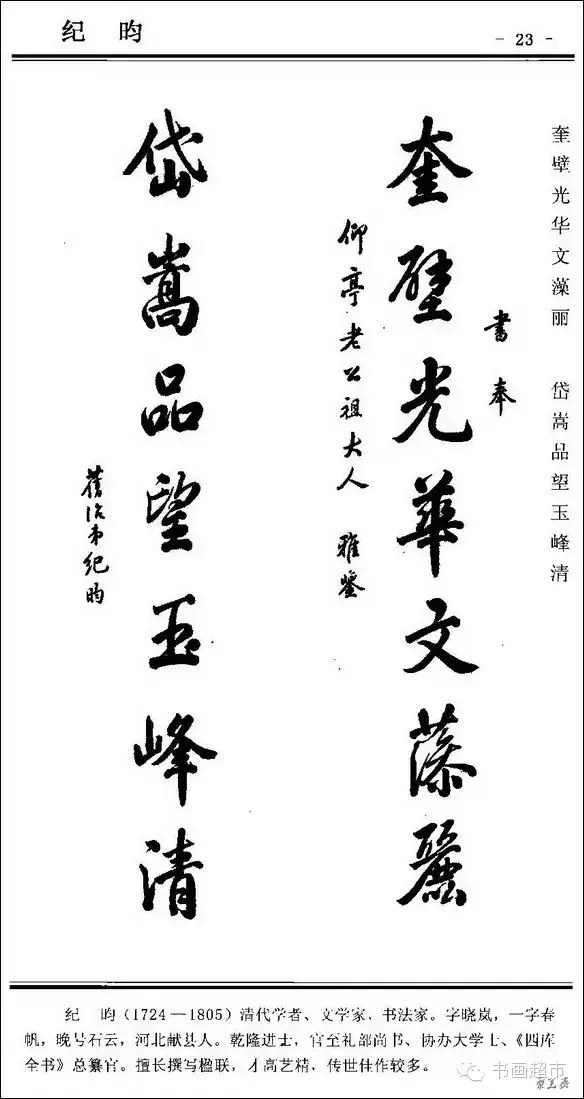 纪　昀
- 23 -
奎壁光华文藻丽　岱嵩品望玉峰清
書奉
奎壁光華文藻麗
仰亭老公祖大人　雅鑒
岱嵩品望玉峰清
舊治弟纪昀
纪　昀(1724—1805)清代学者、文学家、书法家。字晓岚，一字春
帆，晚号石云，河北献县人。乾隆进士，官至礼部尚书、协办大学士、《四库
全书》总纂官。擅长撰写楹联，才高艺精，传世佳作较多。
书画超市